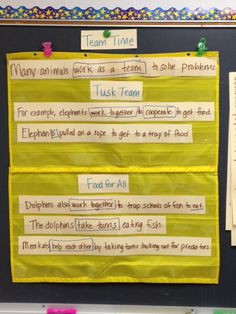 Team Time
Many animals work as a team to solve problems.
Tusk Team
For example, elephants work together to cooperate to get food.
Elephants pulled on a rope to get to a tray of food.
Food for All
Dolphins also work together to trap schools of fish to eat.
The dolphins take turns eating fish.
Meerkats help each other by taking turns looking out for predators.